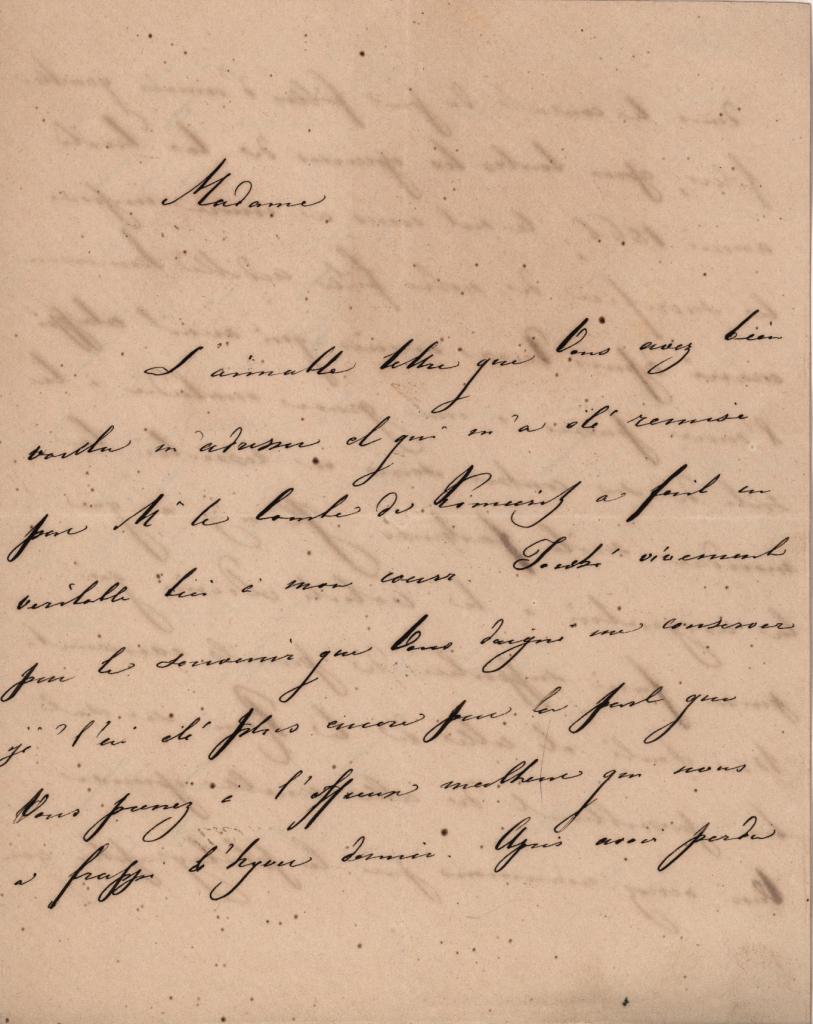 Madame
L'aimable lettre que Vous avez bien
voulu m'adresser et qui m'a été remise
par Mr le Comte de a fait un
veritable bien à mon coeur. Touché vivement
par le souvenir que Vous daigné me conserver
je l'ai été plus encore par la part que
Vous prenez à l'affreux malheur qui nous
a frappé l'hyver dernier. Après avoir perdu